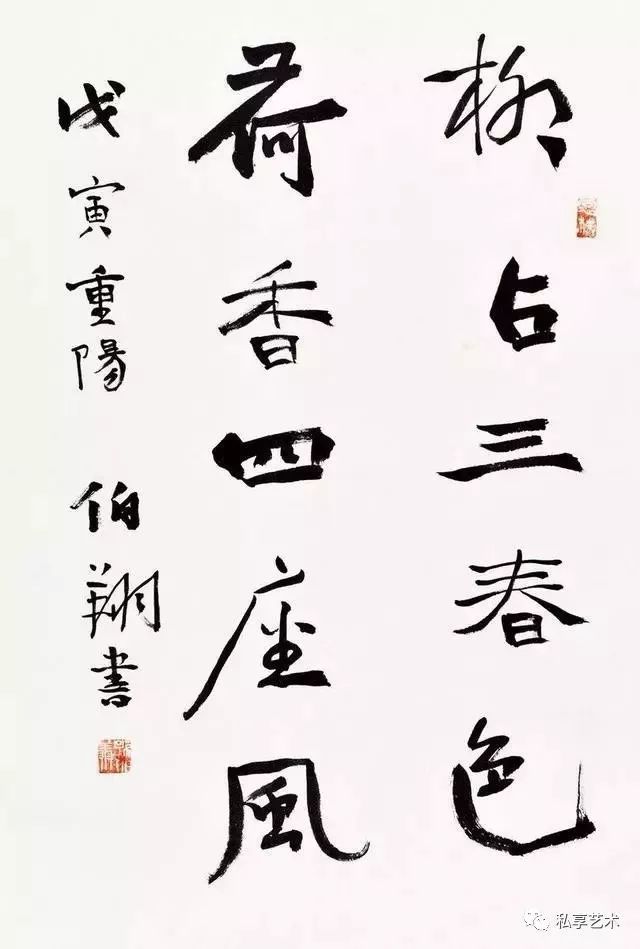 柳占三春色
荷香四座風
戊寅重陽 伯翔書
私享艺术